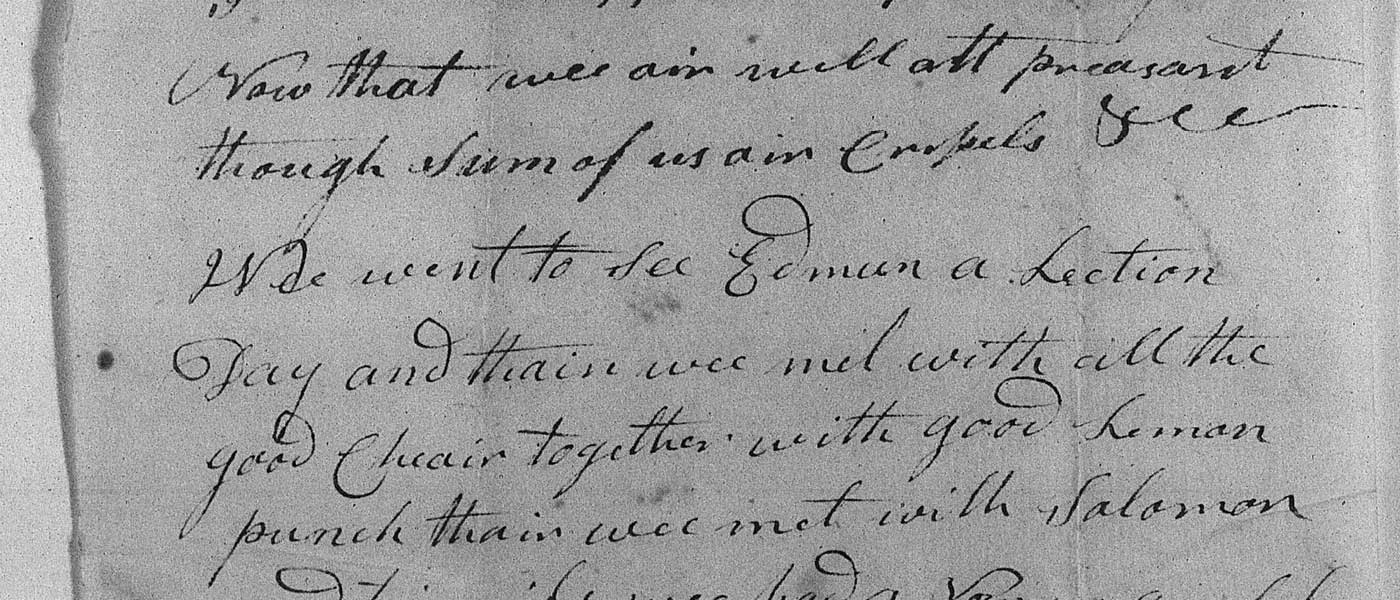 Now that wee air well att preasant
though Sum of us air Cripels &cc
Wee went to See Edmun a Lection
Day and thain wee met with all the
good Cheair together with good Leman
punch thain wee met with Salomon
had a